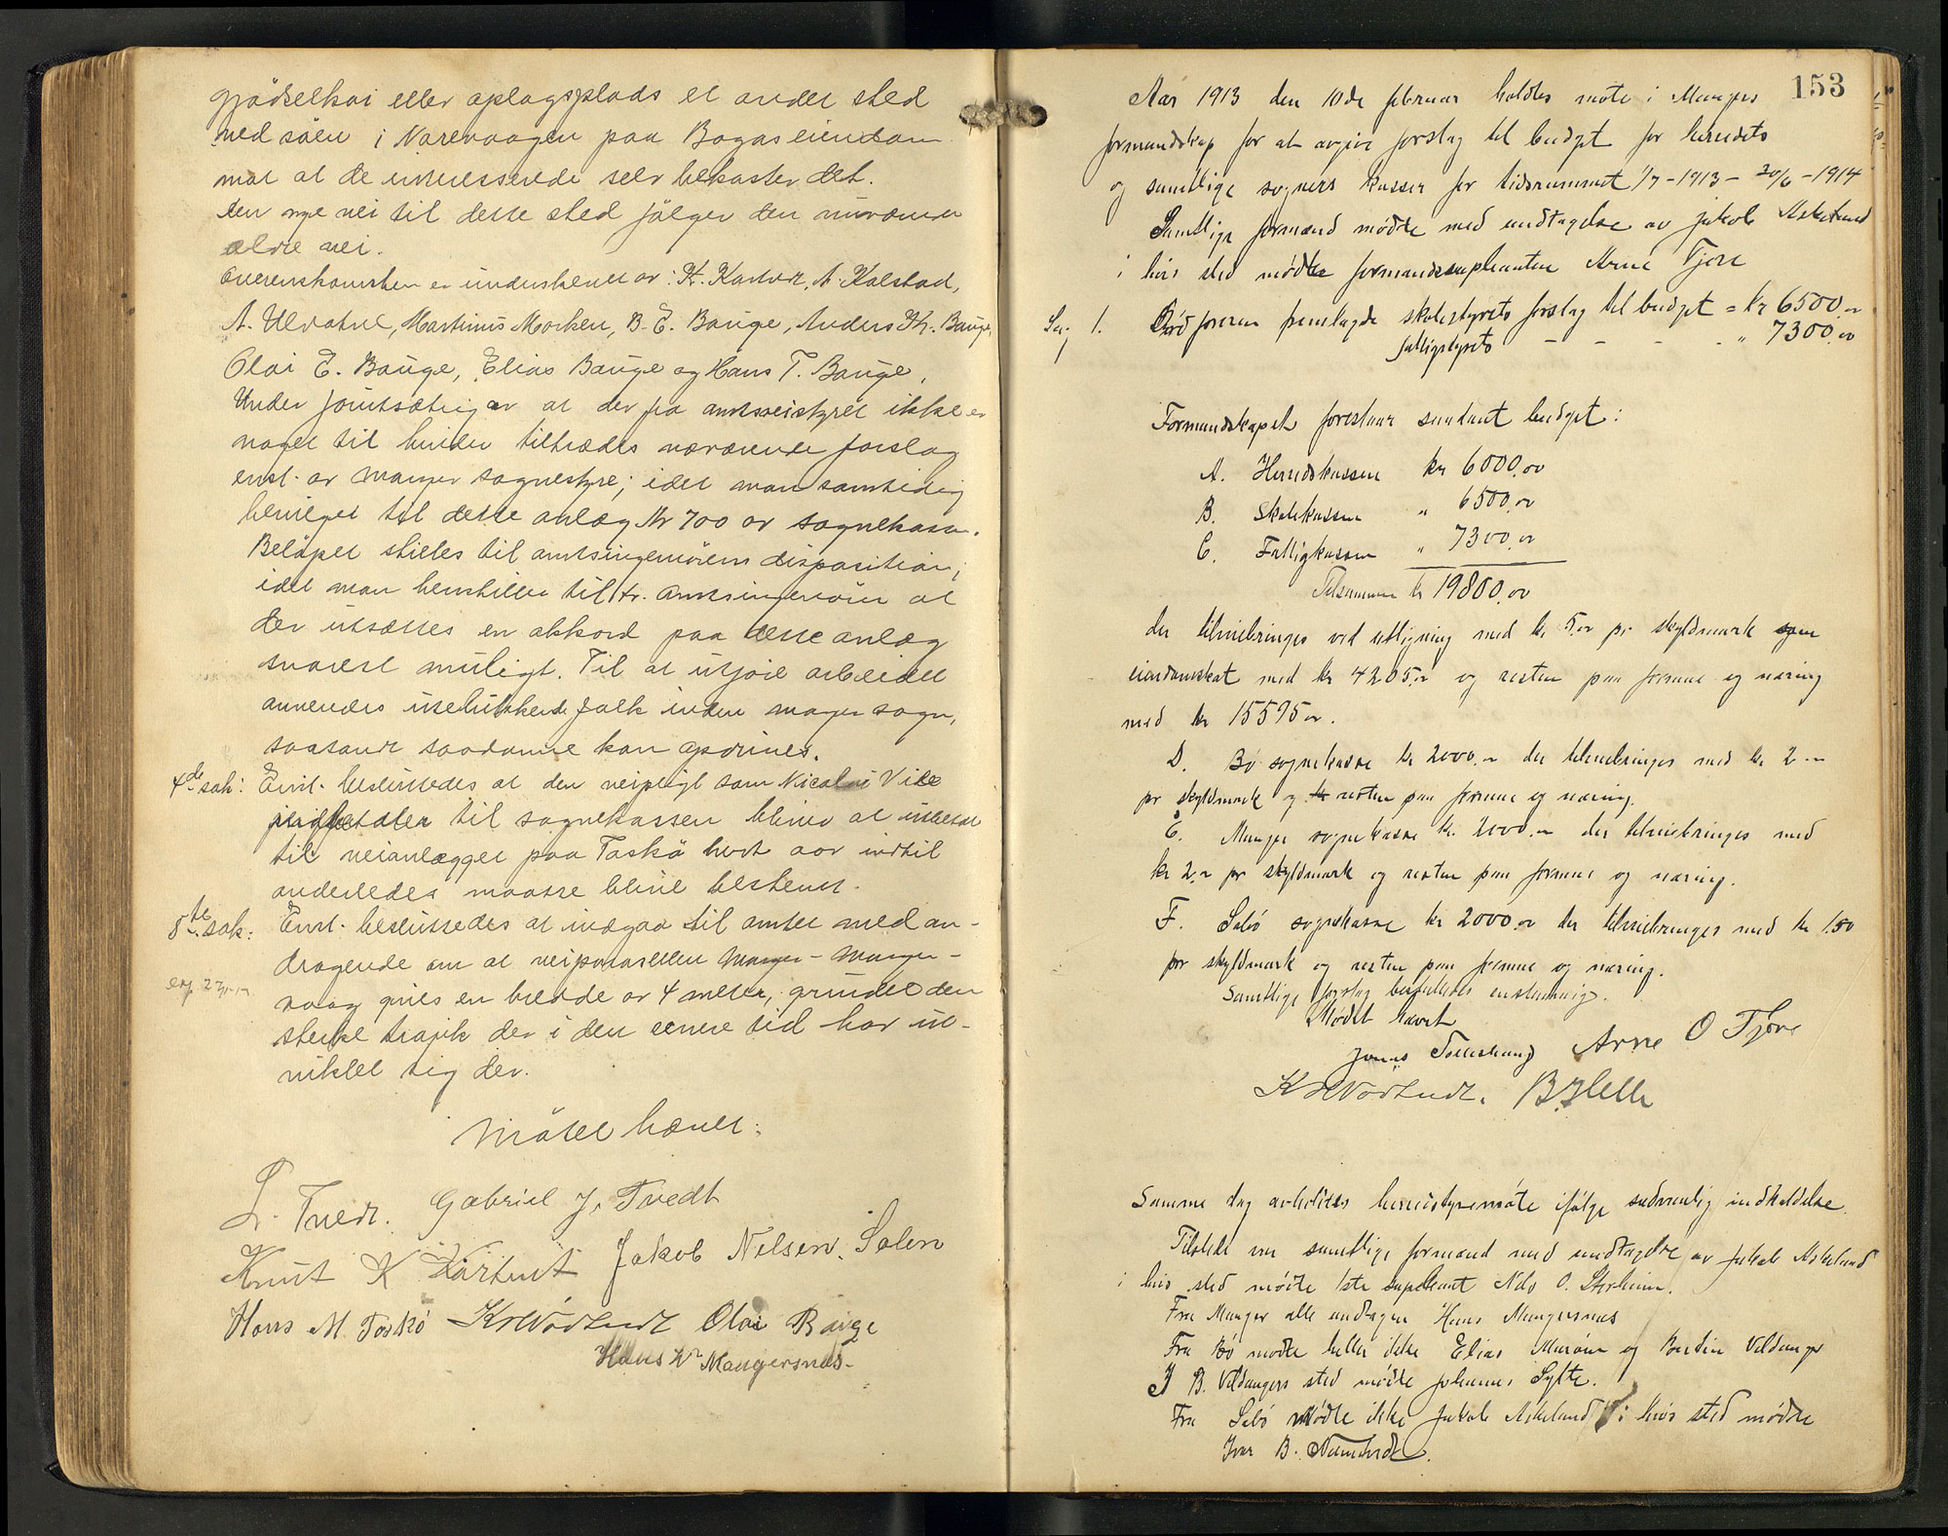 gjødselkai eller oplagsplads et andet sted
ved søen i Narevaagen paa Bogas eiendom
mot at de interesserede selv bekoster det.
Den nye vei til dette sted følger den nuværende
ældre vei.
Overenskomsten er underskrevet av: K. Kartveit, A. Kolstad,
A. Ulvatne, Martinus Morken, B. E. Bauge, Anders Kr. Bauge,
Olai E. Bauge, Elias Bauge og Hans T. Bauge,
Under forutsætning av at der fra amtsveistyret ikke er
noget til hinder tiltrædes nærværende forslag
enst. av Manger sognestyre; idet man samtidig
beviliger til dette anlæg Kr 700 av sognekassen.
Beløpet stilles til amtsingeniørens disposition;
idet man henstiller til hr. amtsingeniøren at
der utsættes en akkord paa dette anlæg
snarest muligt. Til at utføre arbeidet
anvendes utelukkende folk inden Manger sogn,
saasandt saadanne kan opdrives.
4de sak: Enst. besluttedes at den veipligt som Nicolai Vike
indbetaler til sognekassen bliver at utbetale
til veianlægget paa Toskø hvert aar indtil
anderledes maatte blive bestemt.
8de sak: Enst. besluttedes at indgaa til amtet med an-
dragende om at veiparsellen Manger - Manger-
vaag gives en bredde av 4 meter, grundet den
sterke trafik der i den senere tid har ut-
viklet sig der.
Møtet hævet.
L. Tvedt. Gabriel J. Tvedt
Knut K Kartveit Jakob Nilsen. Solen
Hans M. Toskø K Nordtvedt Olai Bauge
Hans N Mangersnæs.
153
Aar 1913 den 10de februar holdtes møte i Manger
formandskap for at avgive forslag til budget for herredets
og samtlige sognes kasser for tidsrummet 1/7 - 1913 - 30/6 - 1914
Samtlige formænd mødte med undtagelse av Jakob Askeland
i hvis sted mødte formandssuplianten Arne Fjøre
Sag 1. Ordføreren fremlagde skolestyrets forslag til budget = kr 6500,00
fattigstyrets - - - - " 7300,00
Formandskapet foreslaar saadant budget:
A. Herredskassen kr 6000,00
B. Skolekassen " 6500,00
C. Fattigkassen " 7300,00
Tilsammen kr 19800,00
der tilveiebringes ved utligning med kr 5,00 pr skyldmark som
eiendomskat med kr 4205,00 og resten paa formue og næring
med kr 15595,00.
D. Bø sognekasse kr 2000,00 der tilveiebringes med kr 2,00
pr skyldmark og resten paa formue og næring.
E. Manger sognekasse kr. 2000,00 der tilveiebringes med
kr 2,00 pr skyldmark og resten paa formue og næring.
F. Sæbø sognekasse kr 2000,00 der tilveiebringes med kr 1,50
pr skyldmark og resten paa formue og næring.
Samtlige forslag besluttedes enstemmig.
Mødet hævet
Jonas Toskeland Arne O Fjøre
K Nordtvedt. B. Helle
Samme dag avholdtes herredstyremøte ifølge sedvanlig indkaldelse.
Tilstede var samtlige formænd med undtagelse av Jakob Askeland
i hvis sted mødte 1ste supleant Nils O. Storheim.
Fra Manger alle undtagen Hans Mangersnæs
Fra Bø mødte heller ikke Elias Marøen og Bertin Vildanger
I B. Vildangers sted mødte Johannes Sylte.
Fra Sæbø mødte ikke Jakob Askeland i hvis sted mødte
Ivar B. Numtvedt.